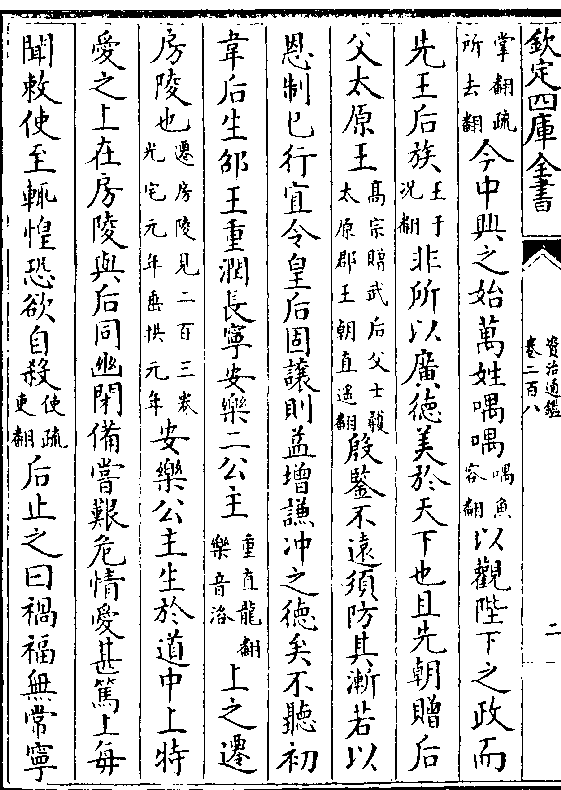 欽定四庫全書
資治通鑑
卷二百八
二
掌翻疏所去翻今中興之始萬姓喁喁喁魚容翻以觀陛下之政而
先王后族王于况翻非所以廣德美於天下也且先朝贈后
父太原王高宗贈武后父士彠太原郡王朝直遥翻殷鑒不遠須防其漸若以
恩制已行宜令皇后固讓則益增謙冲之德矣不聽初
韋后生邵王重潤長寧安樂二公主重直龍翻樂音洛上之遷
房陵也遷房陵見二百三卷光宅元年垂拱元年安樂公主生於道中上特
愛之上在房陵與后同幽閉備嘗艱危情愛甚篤上每
聞敕使至輒惶恐欲自殺使疏吏翻后止之曰禍福無常寧